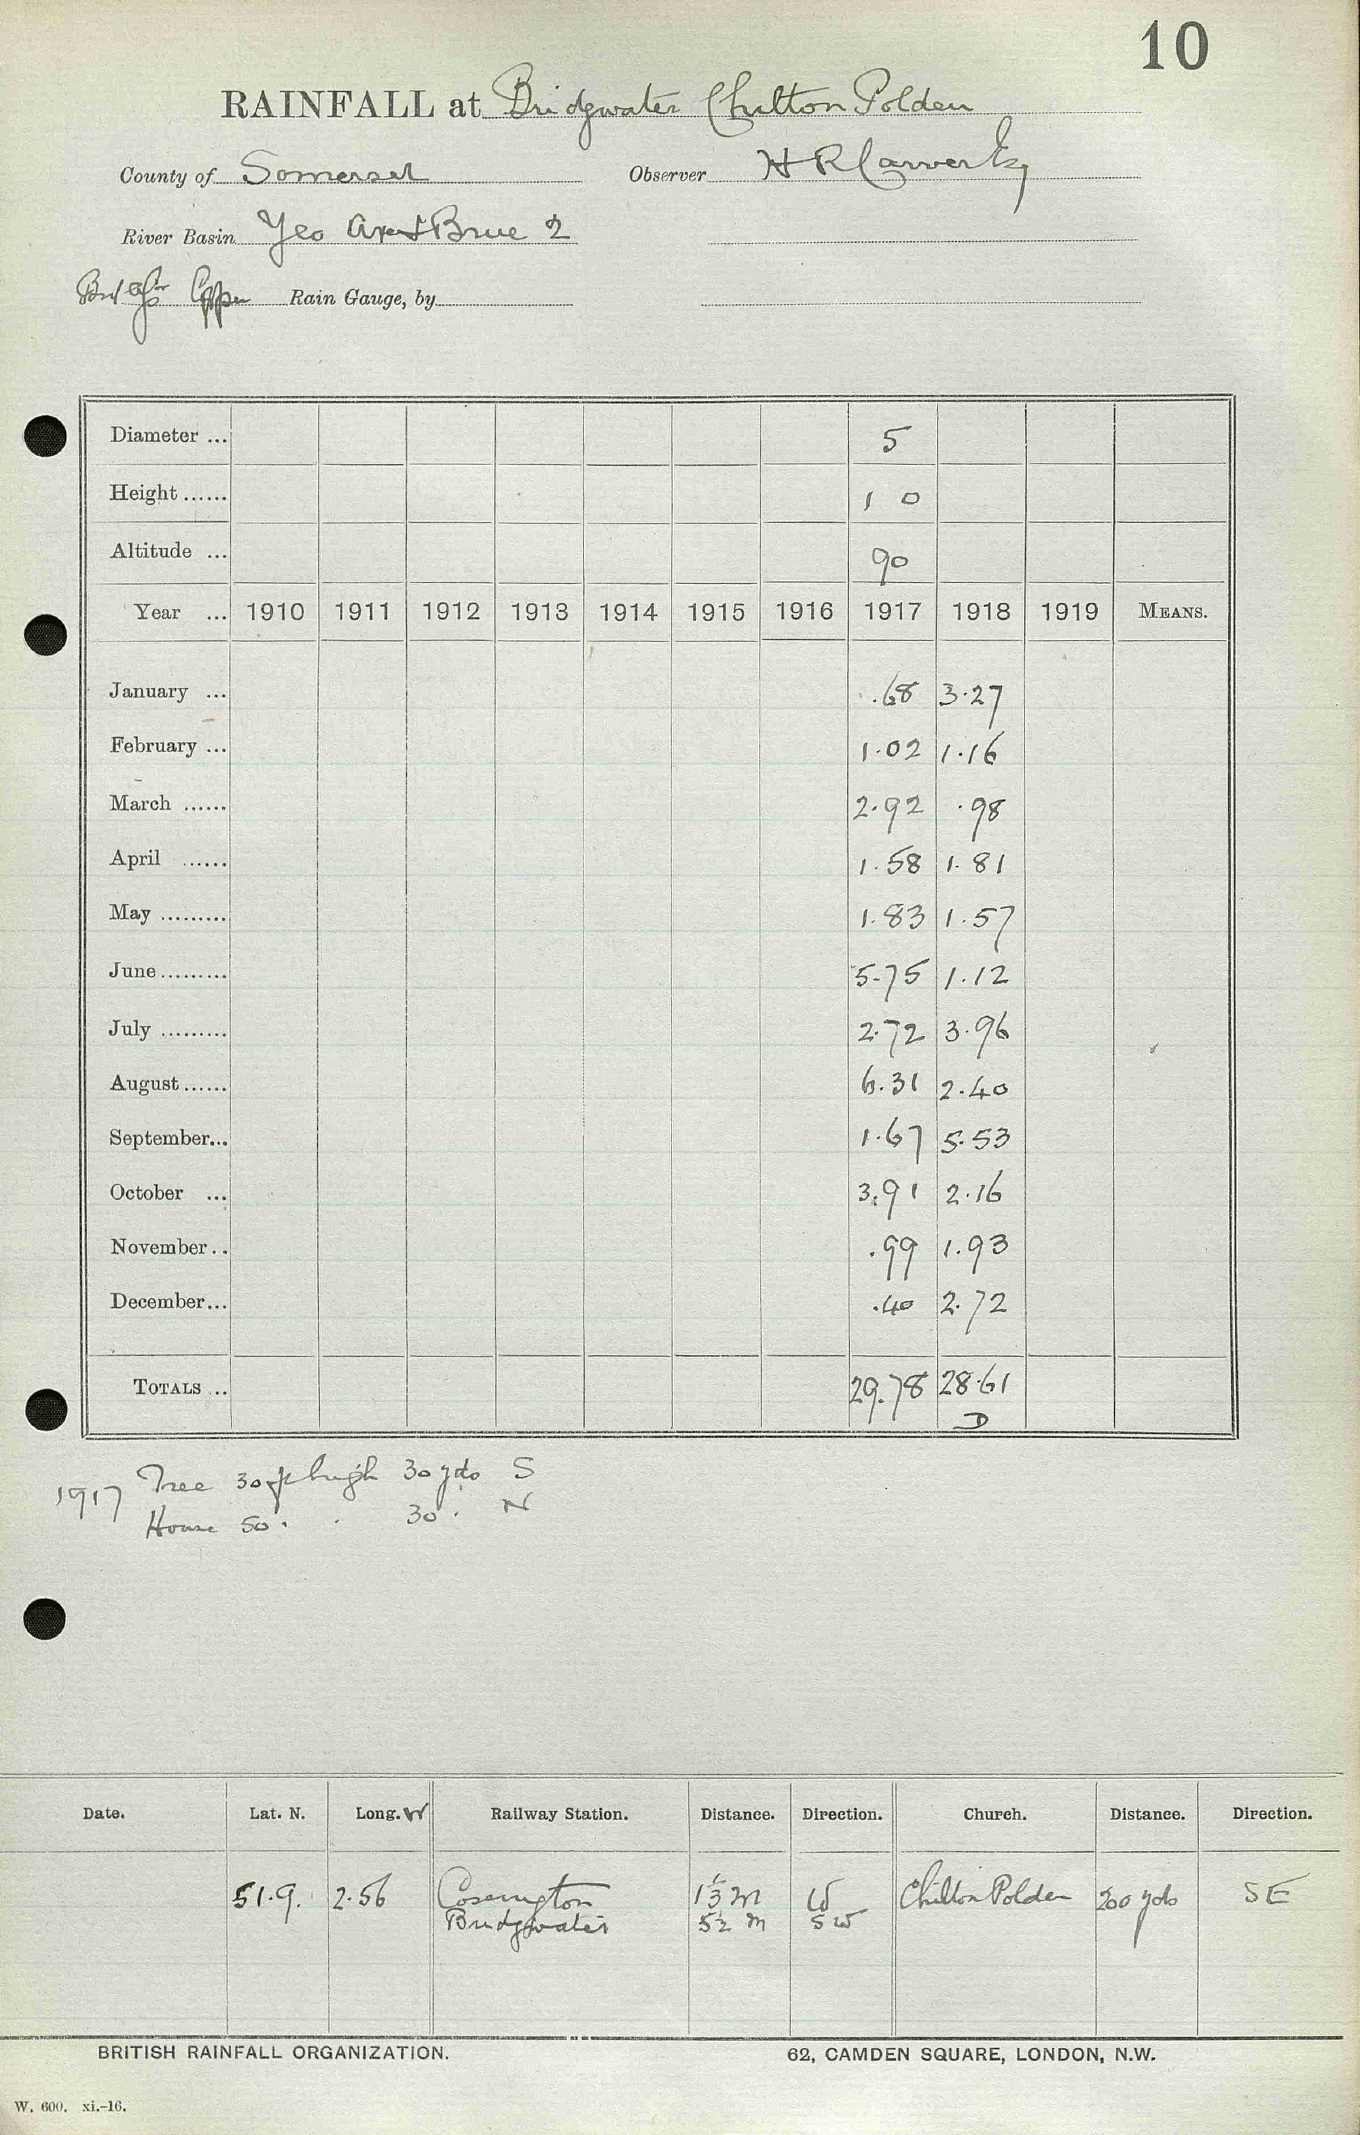 10
RAINFALL at Bridgwater Chilton Polden
County of Somerset Observer H R Carver Esq
River Basin Yeo Axe & Brue 2
Rain Gauge, by
Diameter ... 5
Height ...... 1 0
Altitude ... 90
Year ... 1910 1911 1912 1913 1914 1915 1916 1917 1918 1919 MEANS.
January ... .68 3.27
February ... 1.02 1.16
March ...... 2.92 .98
April ...... 1.58 1.81
May ......... 1.83 1.57
June ......... 5.75 1.12
July ......... 2.72 3.96
August ...... 6.31 2.40
September... 1.67 5.53
October ... 3.91 2.16
November .. .99 1.93
December... .40 2.72
TOTALS ... 29.78 28.61
D
1917 Tree 30 ft high 30 yds S
House 50 . . 30 . N
Date. Lat. N. Long. W Railway Station. Distance. Direction. Church. Distance. Direction.
51.9. 2.56 Cossington 1⅓ m W Chilton Polden 200 yds SE
Bridgwater 5½ m SW
BRITISH RAINFALL ORGANIZATION. 62, CAMDEN SQUARE, LONDON, N.W.
W. 600. xi.-16.